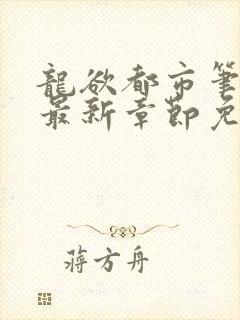 龍欲都市筆
最新章節免
蔣方舟